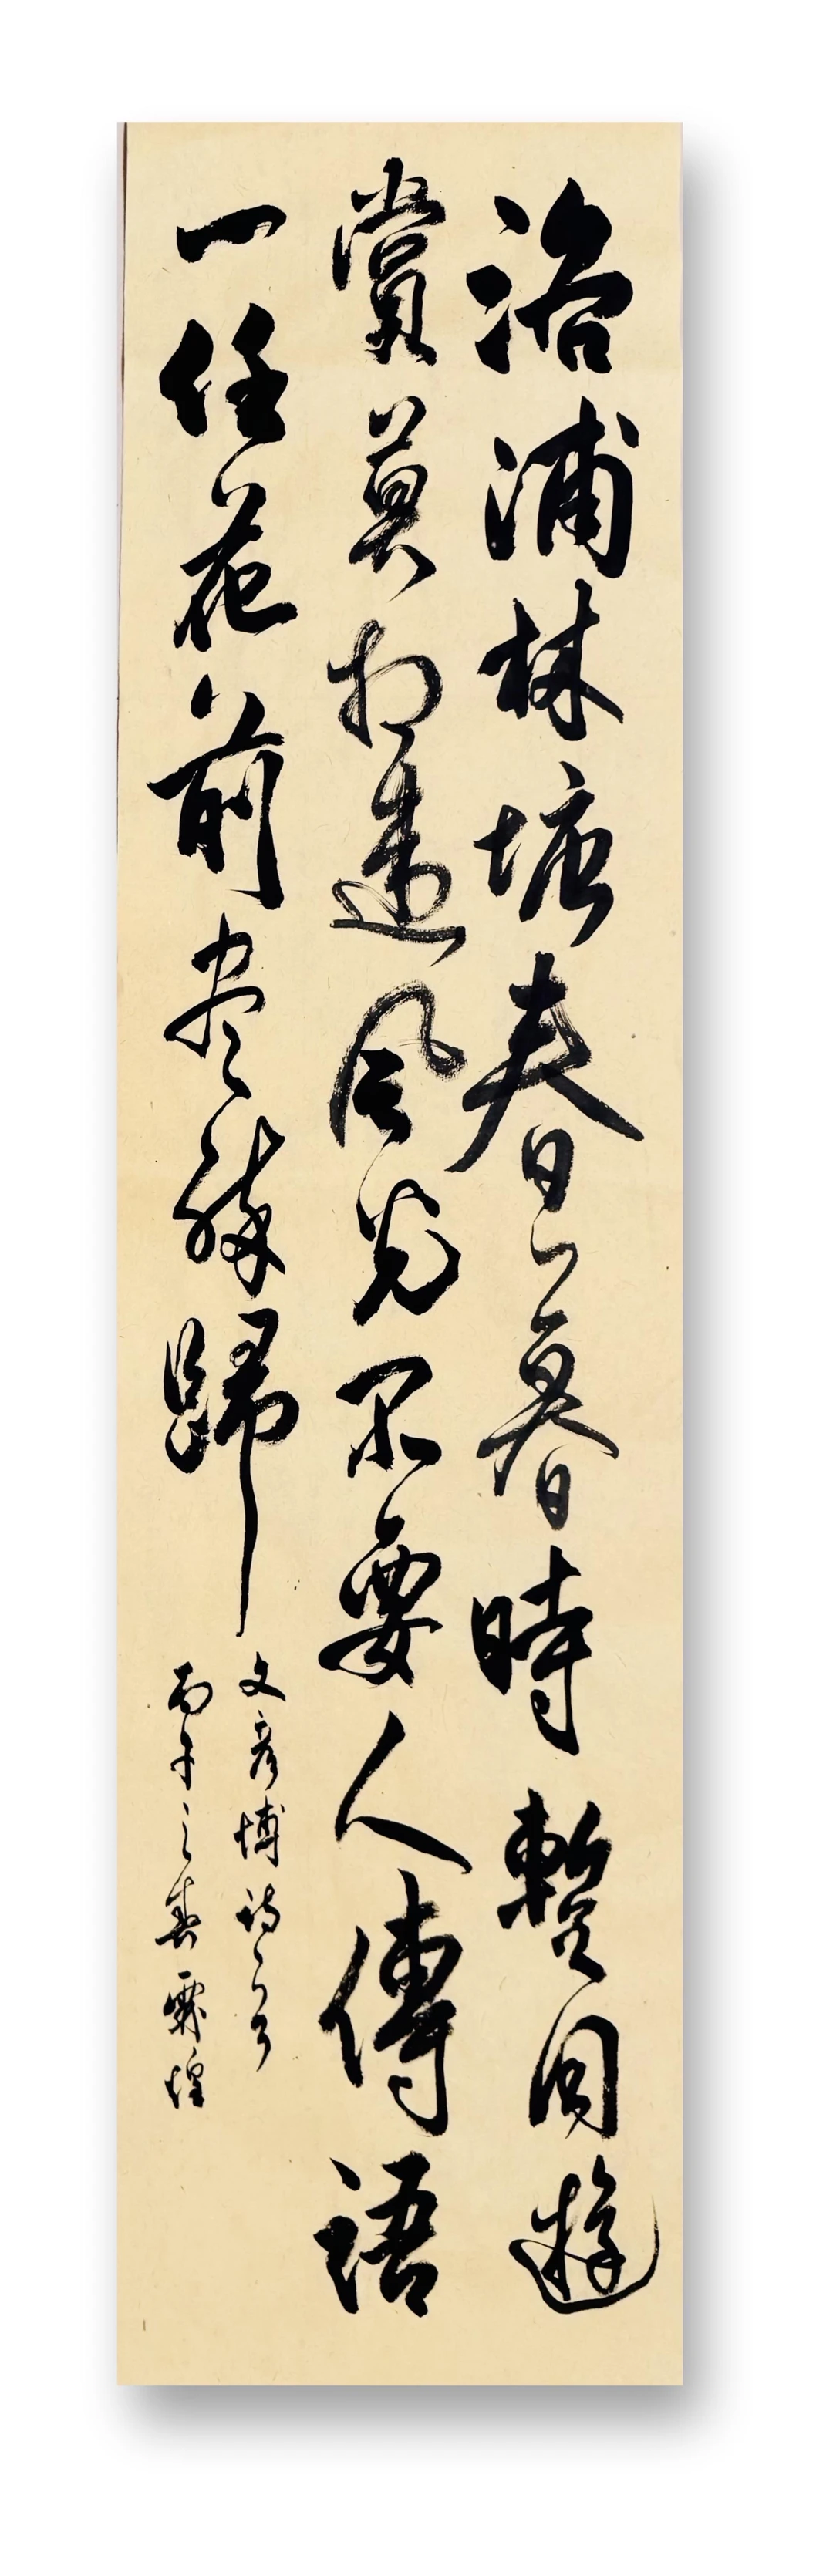 洛浦林塘春暮時暫同遊
賞莫相違風光不要人傳語
一任花前盡醉歸
文彥博詩
丙午之春霖煌